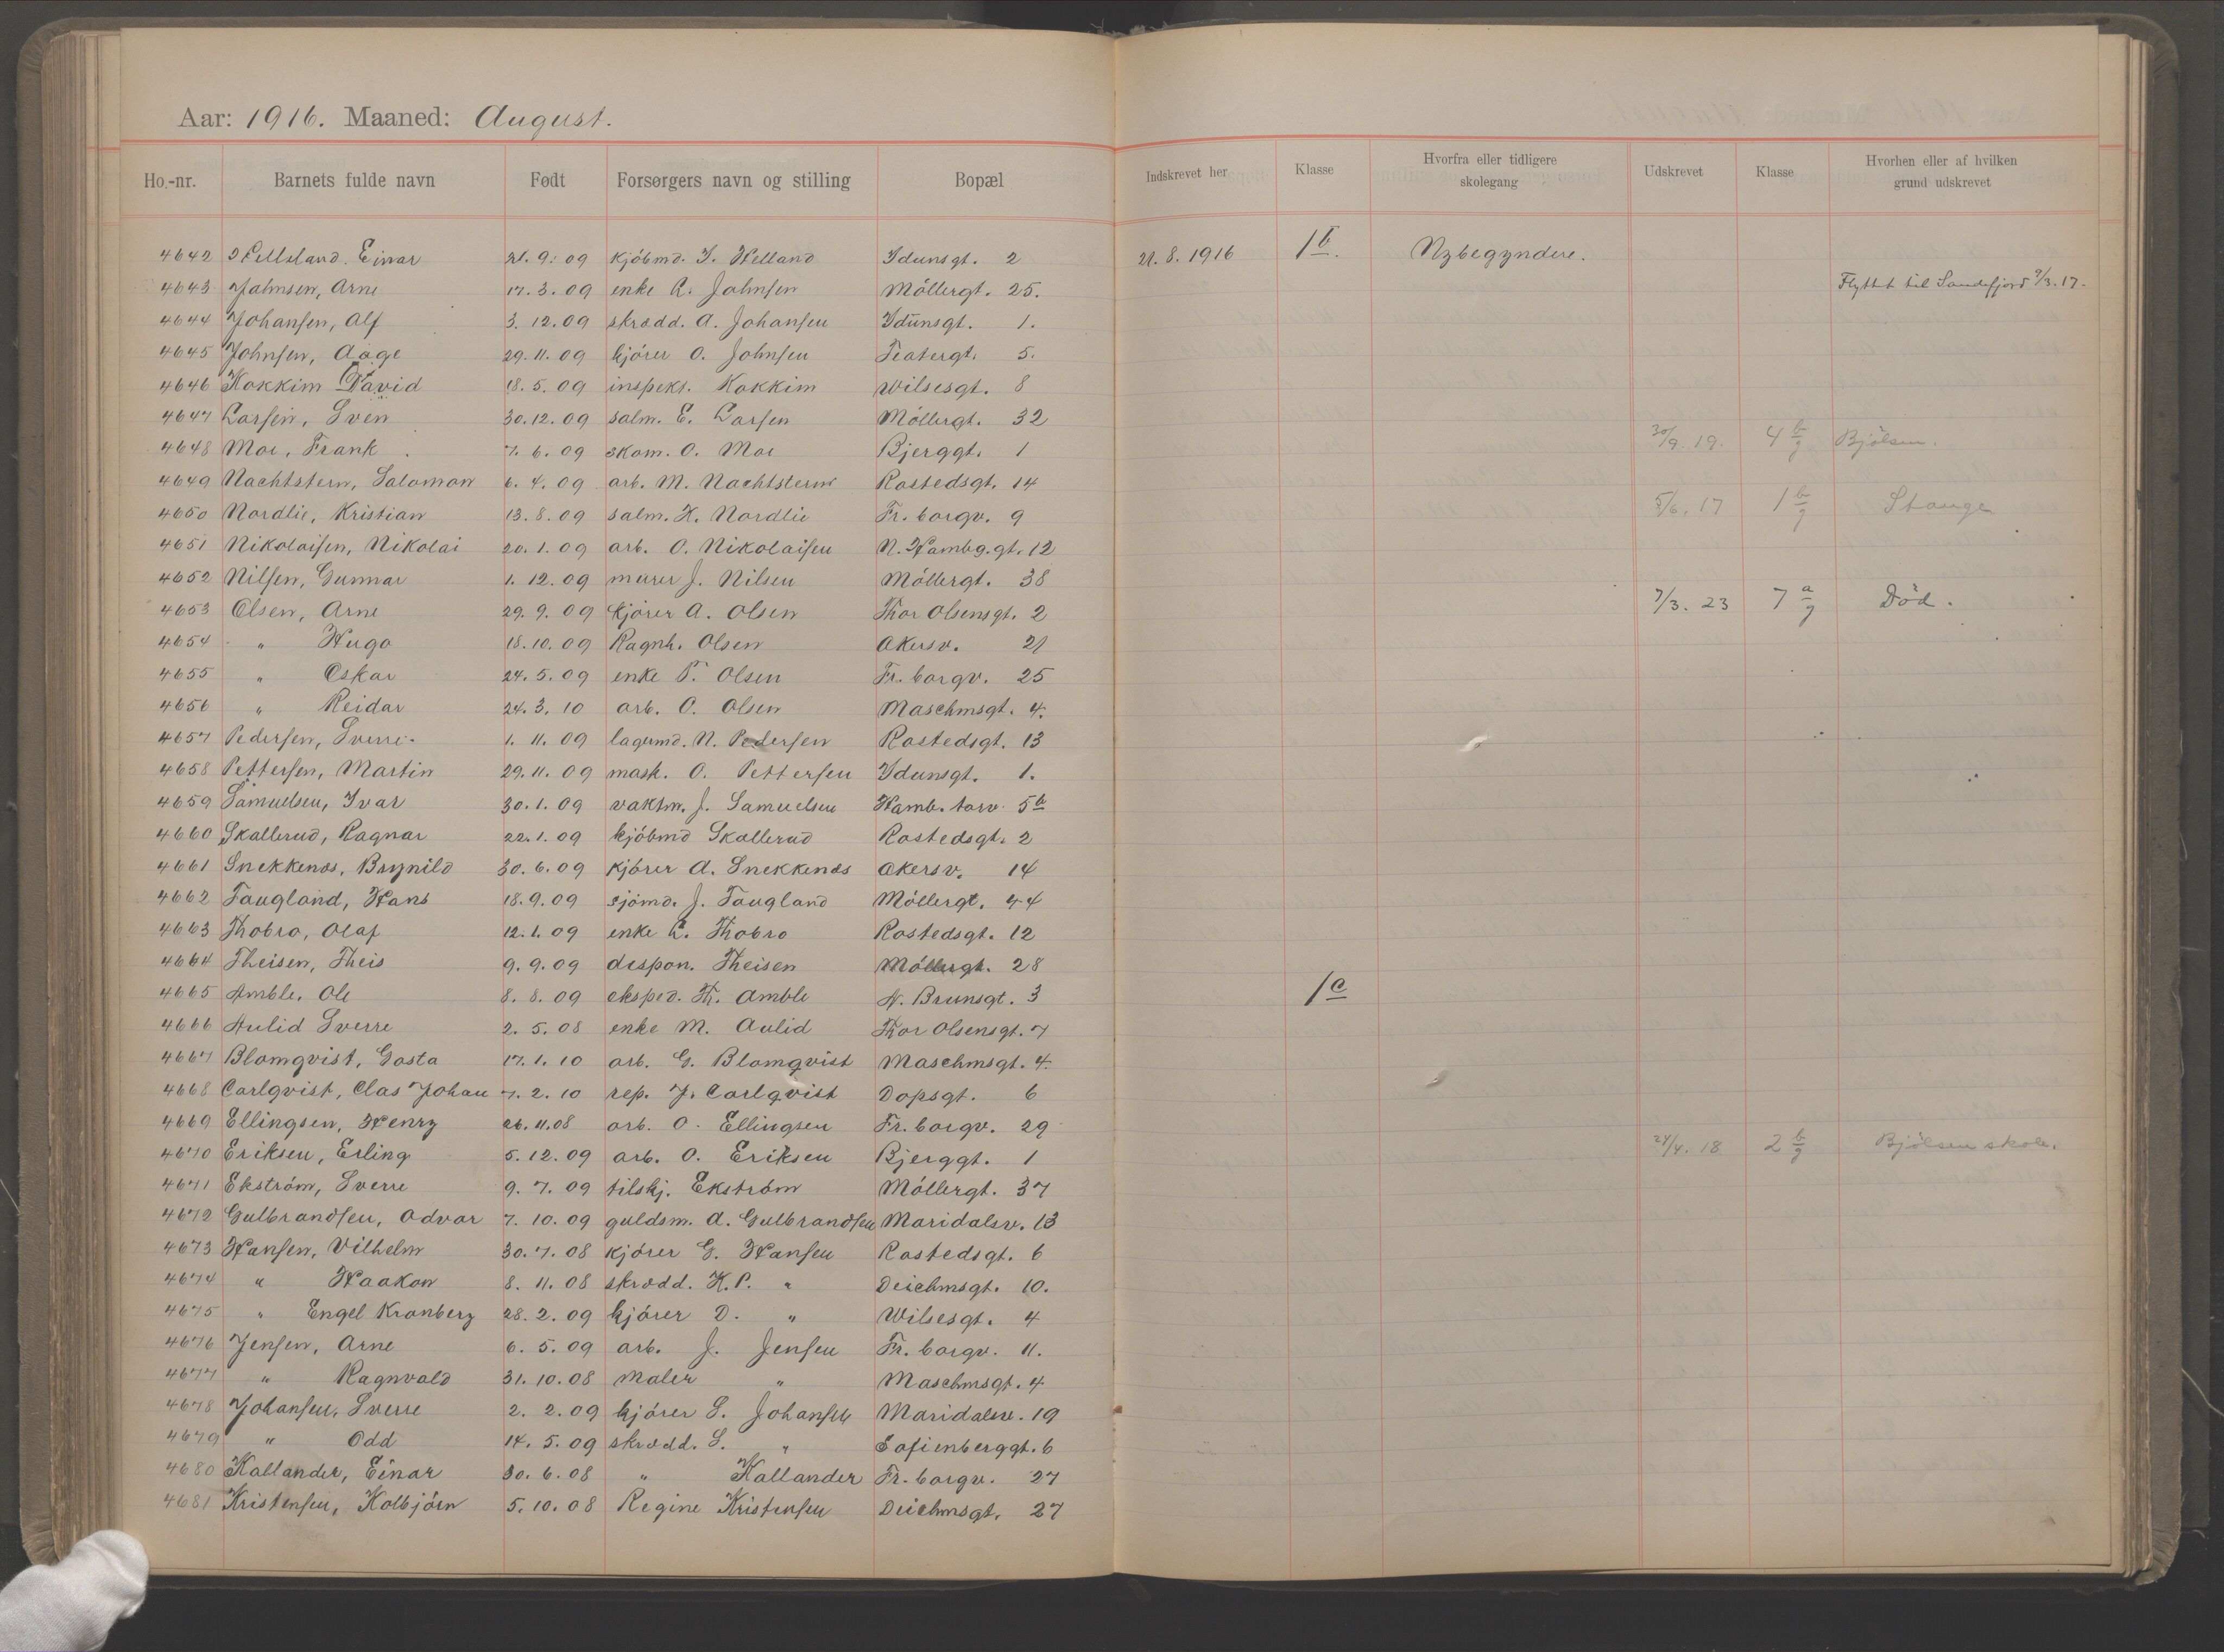 Aar: 1916. Maaned: August.
Ho.-nr. Barnets fulde navn Født Forsørgers navn og stilling Bopæl Indskrevet her Klasse Hvorfra eller tidligere skolegang Udskrevet Klasse Hvorhen eller af hvilken grund udskrevet
4642 Hellsland. Einar 21. 9. 09 kjöbmd. J. Helland Idunsgt. 2 21. 8. 1916 1 b. Nybegyndere.
4643 Jahnsen, Arne 17. 3. 09 enke R. Jahnsen Möllergt. 25. Flyttet til Sandefjord 7/3. 17.
4644 Johansen, Alf 3. 12. 09 skrædd. A. Johansen Idunsgt. 1.
4645 Johnsen, Aage 29. 11. 09 kjörer O. Johnsen Teatergt. 5.
4646 Kokkim David 18. 5. 09 inspekt. Kokkim Wilsesgt. 8
4647 Larsen, Sven 30. 12. 09 salm. E. Larsen Möllergt. 32
4648 Moe, Frank 7. 6. 09 skom. O. Moe Bjerggt. 1 30/9. 19. 4 b/g Bjölsen.
4649 Nachtstern, Salomon 6. 4. 09 arb. M. Nachtstern Rostedsgt. 14
4650 Nordlie, Kristian 13. 8. 09 salm. K. Nordlie Fr. borgv. 9 5/6. 17 1 b/g Stange
4651 Nikolaisen, Nikolai 20. 1. 09 arb. O. Nikolaisen N. Hambg.gt. 12
4652 Nilsen, Gunnar 1. 12. 09 murer J. Nilsen Möllergt. 38
4653 Olsen, Arne 29. 9. 09 kjörer A. Olsen Thor Olsensgt. 2 7/3. 23 7 a/g Död.
4654 " Hugo 18. 10. 09 Ragnh. Olsen Akersv. 21
4655 " Oskar 24. 5. 09 enke P. Olsen Fr. borgv. 25
4656 " Reidar 24. 3. 10 arb. O. Olsen Maschmsgt. 4.
4657 Pedersen, Sverre. 1. 11. 09 lagermd. N. Pedersen Rostedsgt. 13
4658 Pettersen, Martin 29. 11. 09 mask. O. Pettersen Idunsgt. 1.
4659 Samuelsen, Ivar 30. 1. 09 vaktm. J. Samuelsen Hamb. torv 5 b
4660 Skallerud, Ragnar 22. 1. 09 kjöbmd Skallerud Rostedsgt. 2
4661 Snekkenæs, Brynild 30. 6. 09 kjörer A. Snekkenæs Akersv. 14
4662 Taugland, Hans 18. 9. 09 sjömd. J. Taugland Möllergt. 44
4663 Thobro, Olaf 12. 1. 09 enke L. Thobro Rostedsgt. 12
4664 Theisen, Theis 9. 9. 09 dispon. Theisen Möllergt. 28
4665 Amble, Ole 8. 8. 09 eksped. Th. Amble N. Brunsgt. 3 1 c
4666 Aulid Sverre 2. 5. 08 enke M. Aulid Thor Olsensgt. 7
4667 Blomqvist, Gosta 17. 1. 10 arb. G. Blomqvist Maschmsgt. 4.
4668 Carlqvist, Clas Johan 7. 2. 10 rep. J. Carlqvist Dopsgt. 6
4669 Ellingsen, Henry 26. 11. 08 arb. O. Ellingsen Fr. borgv. 29
4670 Eriksen, Erling 5. 12. 09 arb. O. Eriksen Bjerggt. 1 24/4. 18 2 b/g Bjölsen skole.
4671 Ekström, Sverre 9. 7. 09 tilskj. Ekström Möllergt. 37
4672 Gulbrandsen, Odvar 7. 10. 09 guldsm. A. Gulbrandsen Maridalsv. 13
4673 Hansen, Vilhelm 30. 7. 08 kjörer G. Hansen Rostedsgt. 6
4674 " Haakon 8. 11. 08 skrædd. K. P. " Deichmsgt. 10.
4675 " Engel Kronberg 28. 2. 09 kjörer D. " Wilsesgt. 4
4676 Jensen, Arne 6. 5. 09 arb. J. Jensen Fr. borgv. 11.
4677 " Ragnvald 31. 10. 08 Maler " Maschmsgt. 4
4678 Johansen, Sverre 2. 2. 09 kjörer S. Johansen Maridalsv. 19
4679 " Odd 14. 5. 09 skrædd. S. " Sofienberggt. 6
4680 Kallander, Einar 30. 6. 08 " Kallander Fr. borgv. 27
4681 Kristensen, Kolbjörn 5. 10. 08 Regine Kristensen Deichmsgt. 27